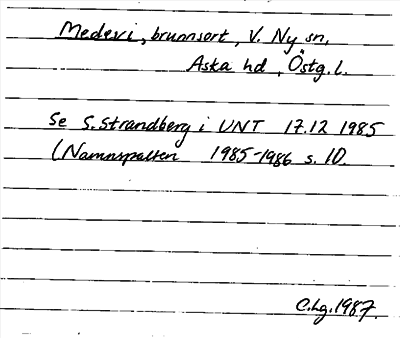 Medevi, brunnsort, V. Ny sn,
Aska hd, Östg.l.
Se S. Strandberg i UNT 17.12 1985
(Namnspalten 1985-1986 s. 10.
C.Lg. 1987.